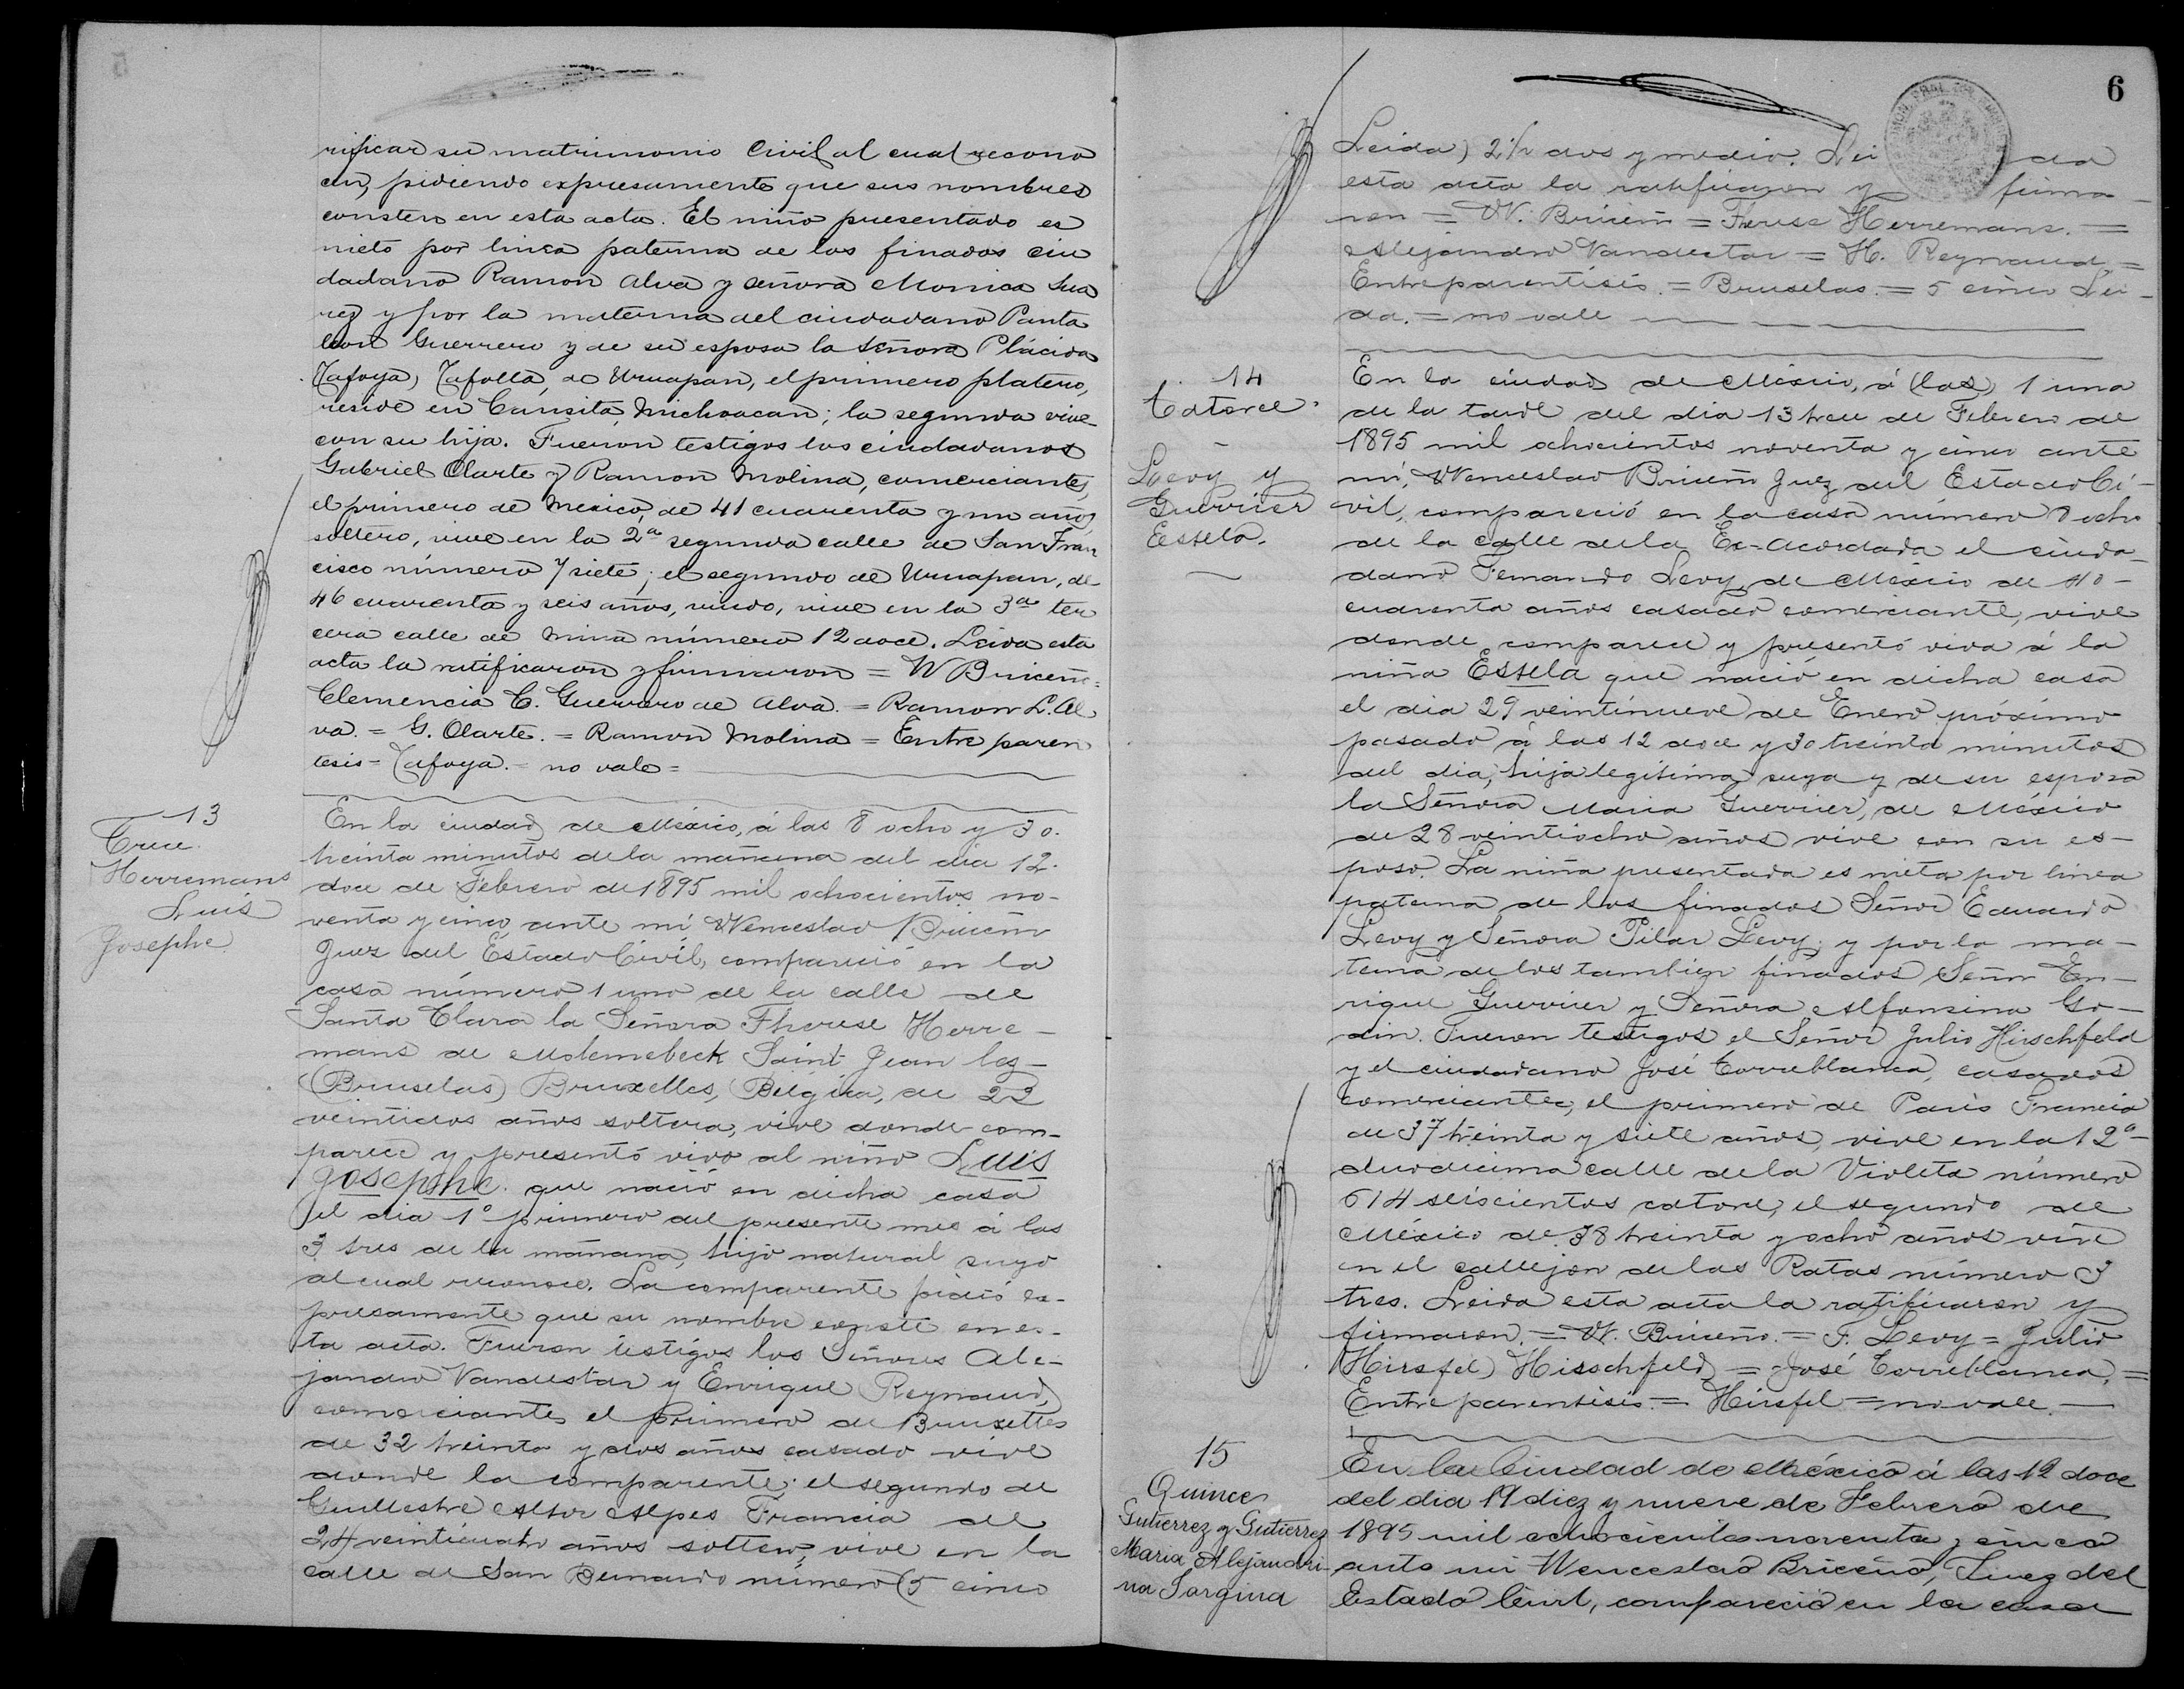 rificar su matrimonio Civil al cual recono
cen, pidiendo expresamente que sus nombres
consten en esta acta. El niño presentado es
nieto por linea paterna de los finados ciu
dadano Ramon Alva y señora Monica Sua
rez y por la materna del ciudadano Panta
leon Guerrero y de su esposa la Señora Plácida
(Tafoya) Tafolla, de Uruapan, el primero platero,
reside en Michoacan; la segunda vive
con su hija. Fueron testigos los ciudadanos
Gabriel Olarte y Ramon Molina, comerciantes,
el primero de Mexico, de 41 cuarenta y un años
soltero, vive en la 2a segunda calle de San Fran
cisco número 7 siete; el segundo de Uruapan, de
46 cuarenta y seis años, viudo, vive en la 3a ter
cera calle de Mina número 12 doce. Leida esta
acta la ratificaron y firmaron = W Briceño =
Clemencia C. Guerrero de Alva. = Ramon L. Al
va. = G. Olarte. = Ramon Molina = Entre paren
tesis = Tafoya. = no vale =
13
Trece
Herremans
Luis
Josephe
En la ciudad de México, á las 8 ocho y 30.
treinta minutos de la mañana del dia 12.
doce de Febrero de 1895 mil ochocientos no-
venta y cinco, ante mí Wenceslao Briceño
Juez del Estado Civil, compareció en la
casa número 1 uno de la calle de
Santa Clara la Señora Therese Herre-
mans de Molemebeck Saint Jean lez-
(Bruselas) Bruxelles, Bélgica, de 22
veintidos años soltera, vive donde com-
parece y presentó vivo al niño Luis
Josephe que nació en dicha casa
el dia 1º primero del presente mes á las
3 tres de la mañana, hijo natural suyo
al cual reconoce. La comparente pidió ex-
presamente que su nombre conste en es-
ta acta. Fueron testigos los Señores Ale-
jandro Vandestar y Enrique Reynaud,
comerciantes el primero de Bruxelles
de 32 treinta y dos años casado vive
donde la comparente; el segundo de
Guillestre Altos Alpes Francia de
24 veinticuatro años soltero, vive en la
calle de San Bernardo número (5 cinco
6
Leida) 2½ dos y medio. Lei da
esta acta la ratificaron y firma-
ron = W. Briceño = Térese Herremans. =
Alejandro Vandestar = H. Reynaud =
Entreparentisis. = Bruselas. = 5 cinco Lei-
da. = no vale
14
Catorce.
Levy y
Guerrier
Estela.
En la ciudad de México, á (las) 1 una
de la tarde del dia 13 trece de Febrero de
1895 mil ochocientos noventa y cinco ante
mí, Wenceslao Briceño Juez del Estado Ci-
vil, compareció en la casa número 8 ocho
de la calle de la Ex-Acordada el ciuda-
dano Fernando Levy, de México de 40-
cuarenta años casado comerciante, vive
donde comparece y presentó viva á la
niña Estela que nació en dicha casa
el dia 29 veintinueve de Enero próximo
pasado á las 12 doce y 30 treinta minutos
del dia, hija legítima suya y de su esposa
la Señora Maria Guerrier, de México
de 28 veintiocho años vive con su es-
poso. La niña presentada es nieta por linea
paterna de los finados Señor Eduardo
Levy y Señora Pilar Levy; y por la ma-
terna de los tambien finados Señor En-
rique Guerrier y Señora Alfonsina Go-
din. Fueron testigos el Señor Julio Hirschfeld
y el ciudadano José Torreblanca, casados
comerciantes, el primero de Paris Francia
de 37 treinta y siete años, vive en la 12a-
duodécima calle de la Violeta número
614 seiscientos catorce, el segundo de
México de 38 treinta y ocho años vive
en el callejon de las Ratas número 3
tres. Leida esta acta la ratificaron y
firmaron. = W. Briceño. = F. Levy = Julio
(Hirsfel) Hisschfeld = José Torreblanca. =
Entre parentisis. = Hirsfel = no vale. —
15
Quince
Gutierrez y Gutierrez
Maria Alejandri-
na Jorgina
En la Ciudad de México á las 12 doce
del dia 19 diez y nueve de Febrero de
1895 mil ochocientos noventa y cinco
ante mi Wenceslao Briceño, Juez del
Estado Civil, compareció en la casa